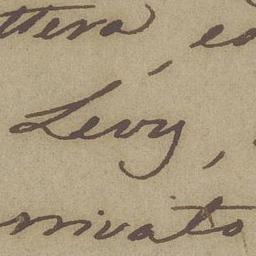 ttera, ed
Levy,
rrivato